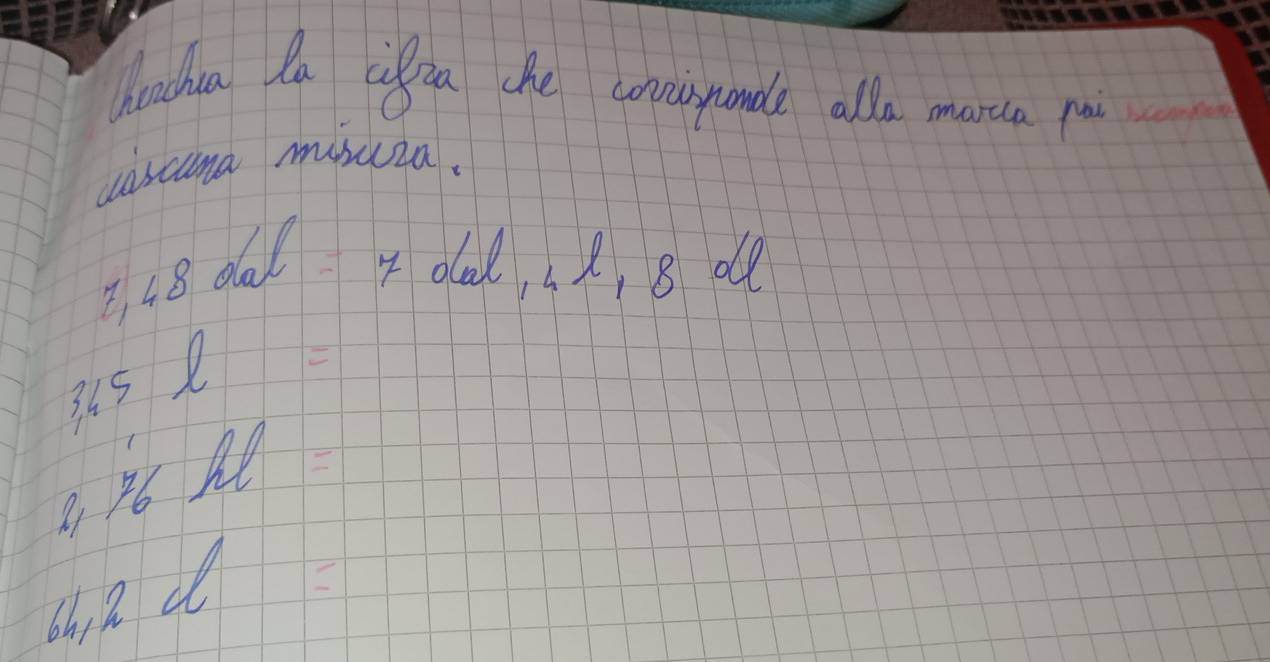 Cerchia la cifra che corrisponde alla marca poi scomponi
ciascuna misura.
7,48 dal = 7 dal, 4 l, 8 dl
3,45 l =
2,76 hl =
64,2 cl =